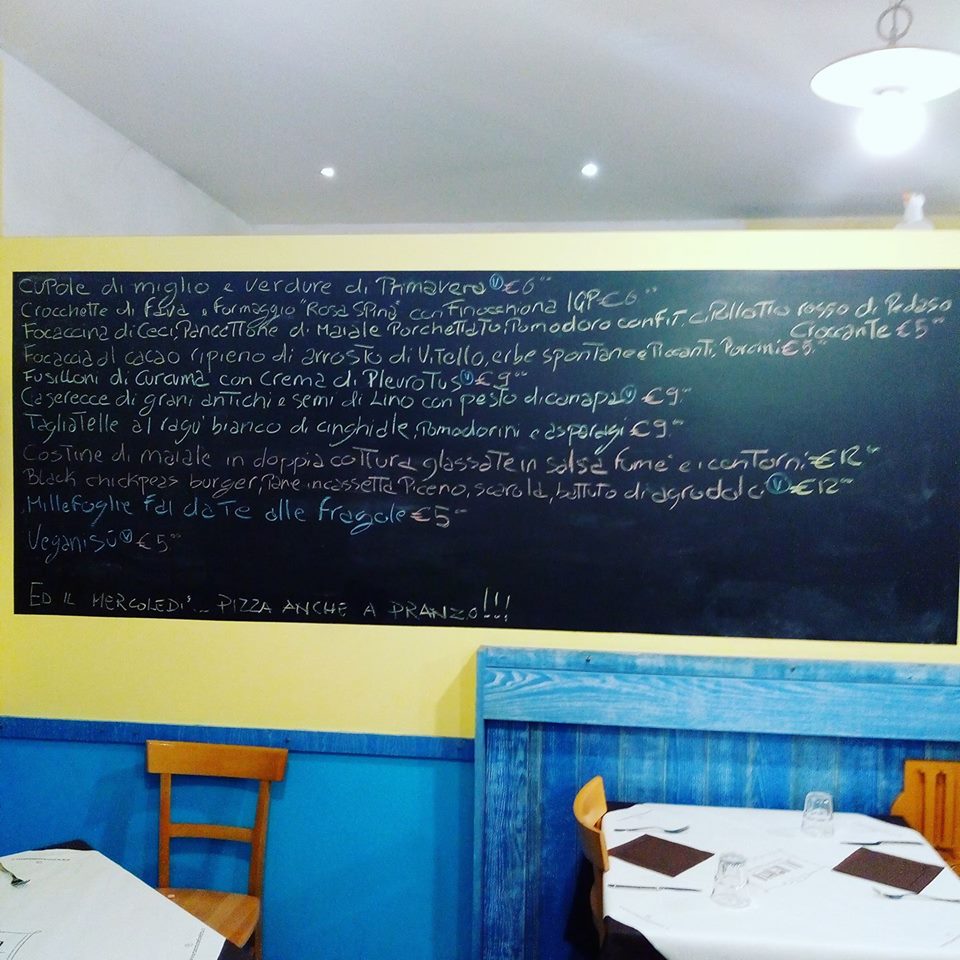 Cupole di miglio e verdure di Primavera Ⓥ €6,00
Crocchette di fava e formaggio "Rosa Spina" con Finocchiona IGP €6,00
Focaccina di Ceci, Pancettone di Maiale Porchettato, Pomodoro confit, cipollotto rosso di Pedaso
Croccante €5,00
Focaccia al cacao ripieno di arrosto di Vitello, erbe spontanee Piccanti, Porcini €5,00
Fusilloni di Curcuma con Crema di Pleurotus Ⓥ €9,00
Caserecce di grani antichi e semi di Lino con pesto di canapa Ⓥ €9,00
Tagliatelle al ragu' bianco di cinghiale, Pomodorini e asparagi €9,00
Costine di maiale in doppia cottura glassate in salsa fume' e i contorni €12,00
Black chickpeas burger, Pane in cassetta Piceno, scarola, battuto di agrodolci Ⓥ €12,00
Millefoglie Fai da te alle fragole €5,00
Veganisù Ⓥ €5,00
ED IL MERCOLEDI'... PIZZA ANCHE A PRANZO!!!